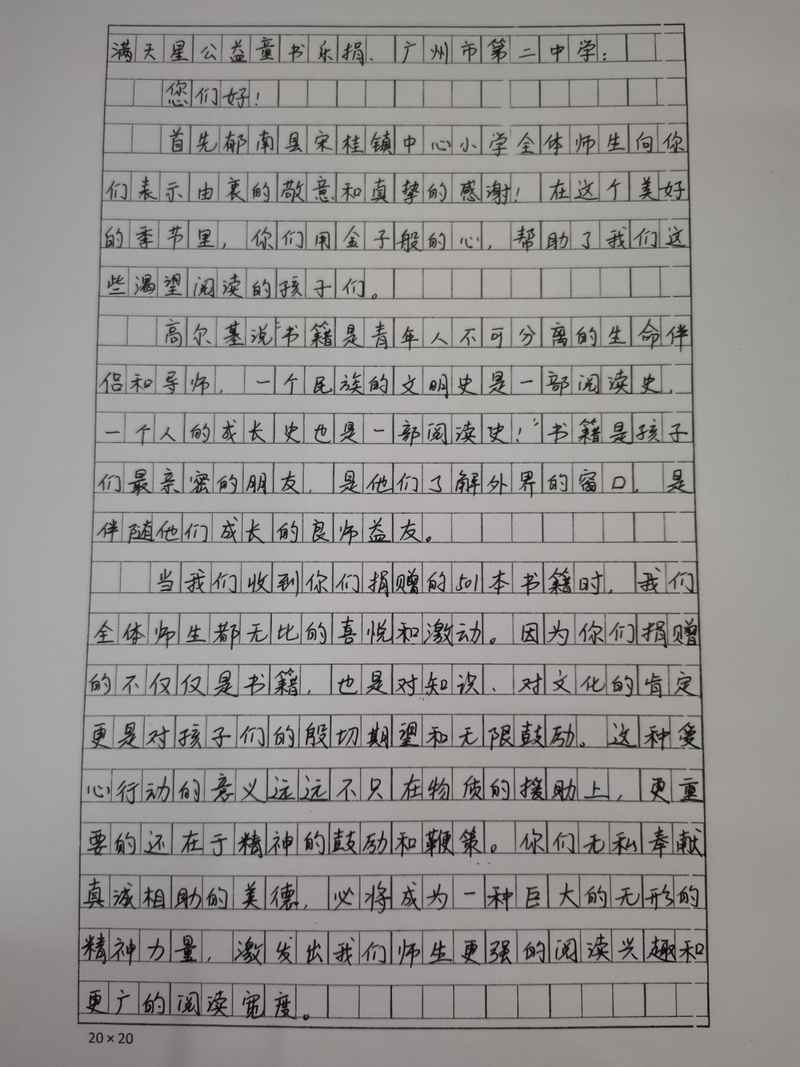 满天星公益童书乐捐、广州市第二中学：
您们好！
首先郁南县宋桂镇中心小学全体师生向你
们表示由衷的敬意和真挚的感谢！在这个美好
的季节里，你们用金子般的心，帮助了我们这
些渴望阅读的孩子们。
高尔基说“书籍是青年人不可分离的生命伴
侣和导师，一个民族的文明史是一部阅读史，
一个人的成长史也是一部阅读史！”书籍是孩子
们最亲密的朋友，是他们了解外界的窗口，是
伴随他们成长的良师益友。
当我们收到你们捐赠的501本书籍时，我们
全体师生都无比的喜悦和激动。因为你们捐赠
的不仅仅是书籍，也是对知识、对文化的肯定
更是对孩子们的殷切期望和无限鼓励。这种爱
心行动的意义远远不只在物质的援助上，更重
要的还在于精神的鼓励和鞭策。你们无私奉献
真诚相助的美德，必将成为一种巨大的无形的
精神力量，激发出我们师生更强的阅读兴趣和
更广的阅读宽度。
20×20